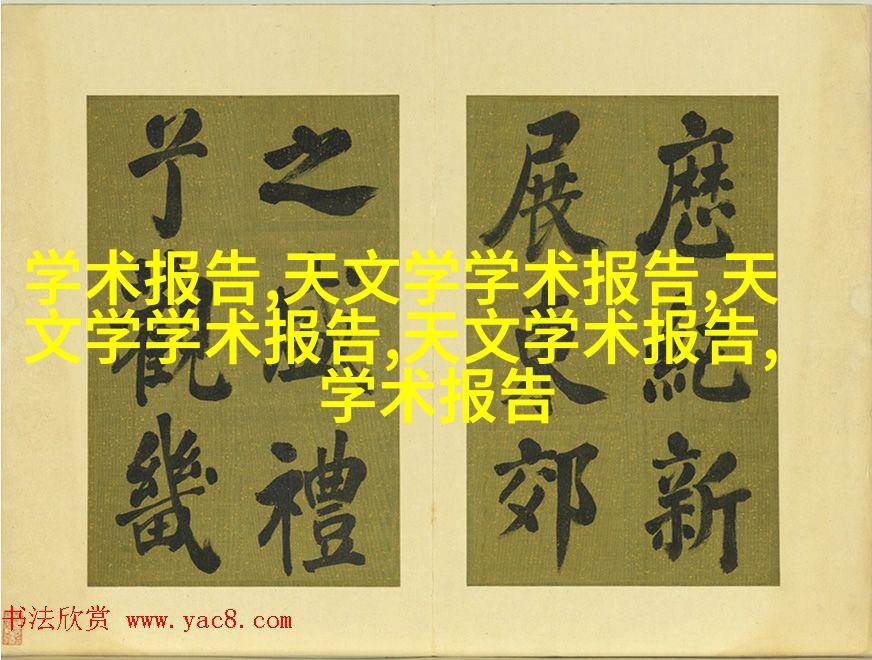 学术报告,天文学学术报告,天
文学学术报告,天文学术报告,
学术报告
歷紀新
展東郊
之盛禮
觀畿
书法欣赏 www.yac8.com